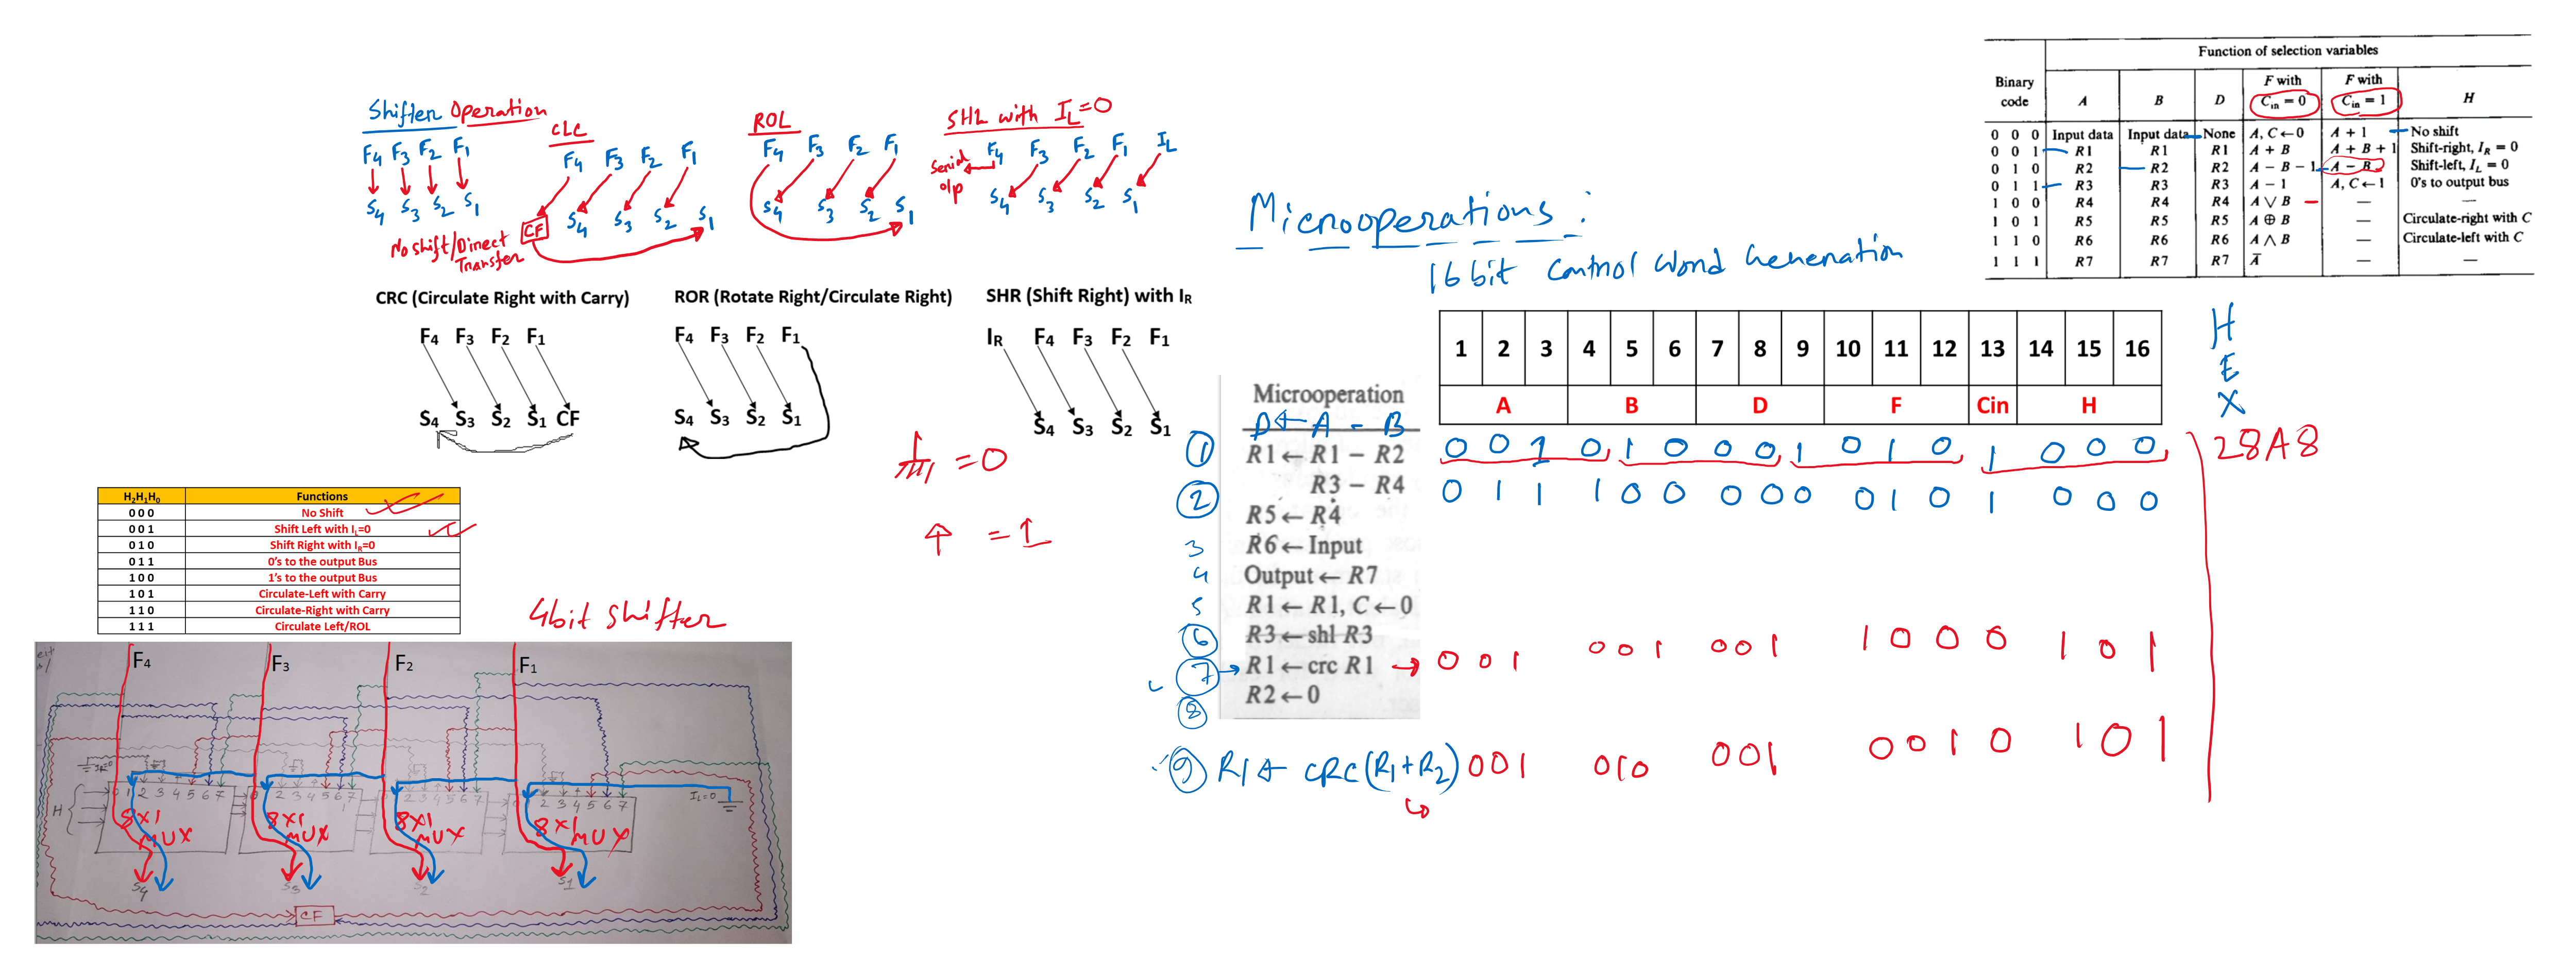 Shifter Operation
F4 F3 F2 F1
S4 S3 S2 S1
No shift/Direct
Transfer
CLC
F4 F3 F2 F1
CF S4 S3 S2 S1
ROL
F4 F3 F2 F1
S4 S3 S2 S1
SHL with IL=0
F4 F3 F2 F1 IL
Serial
o/p
S4 S3 S2 S1
CRC (Circulate Right with Carry)
F4 F3 F2 F1
S4 S3 S2 S1 CF
ROR (Rotate Right/Circulate Right)
F4 F3 F2 F1
S4 S3 S2 S1
SHR (Shift Right) with IR
IR F4 F3 F2 F1
S4 S3 S2 S1
= 0
= 1
H2H1H0 Functions
0 0 0 No Shift
0 0 1 Shift Left with IL=0
0 1 0 Shift Right with IR=0
0 1 1 0's to the output Bus
1 0 0 1's to the output Bus
1 0 1 Circulate-Left with Carry
1 1 0 Circulate-Right with Carry
1 1 1 Circulate Left/ROL
4bit shifter
F4 F3 F2 F1
IL=0
H
8x1 MUX
8x1 MUX
8x1 MUX
8x1 MUX
S4 S3 S2 S1
CF
Microoperations :
16 bit Control Word Generation
Function of selection variables
Binary code A B D F with Cin = 0 F with Cin = 1 H
0 0 0 Input data Input data None A, C ← 0 A + 1 No shift
0 0 1 R1 R1 R1 A + B A + B + 1 Shift-right, IR = 0
0 1 0 R2 R2 R2 A − B − 1 A − B Shift-left, IL = 0
0 1 1 R3 R3 R3 A − 1 A, C ← 1 0's to output bus
1 0 0 R4 R4 R4 A ∨ B — —
1 0 1 R5 R5 R5 A ⊕ B — Circulate-right with C
1 1 0 R6 R6 R6 A ∧ B — Circulate-left with C
1 1 1 R7 R7 R7 Ā — —
1 2 3 4 5 6 7 8 9 10 11 12 13 14 15 16
A B D F Cin H
HEX
Microoperation
D ← A - B
1 R1 ← R1 − R2 0 0 1 0 1 0 0 0 1 0 1 0 1 0 0 0 28A8
2 R3 − R4 0 1 1 1 0 0 0 0 0 0 1 0 1 0 0 0
R5 ← R4
3 R6 ← Input
4 Output ← R7
5 R1 ← R1, C ← 0
6 R3 ← shl R3
7 → R1 ← crc R1 → 0 0 1 0 0 1 0 0 1 1 0 0 0 1 0 1
8 R2 ← 0
9 R1 ← CRC(R1+R2) 001 010 001 0 0 1 0 1 0 1